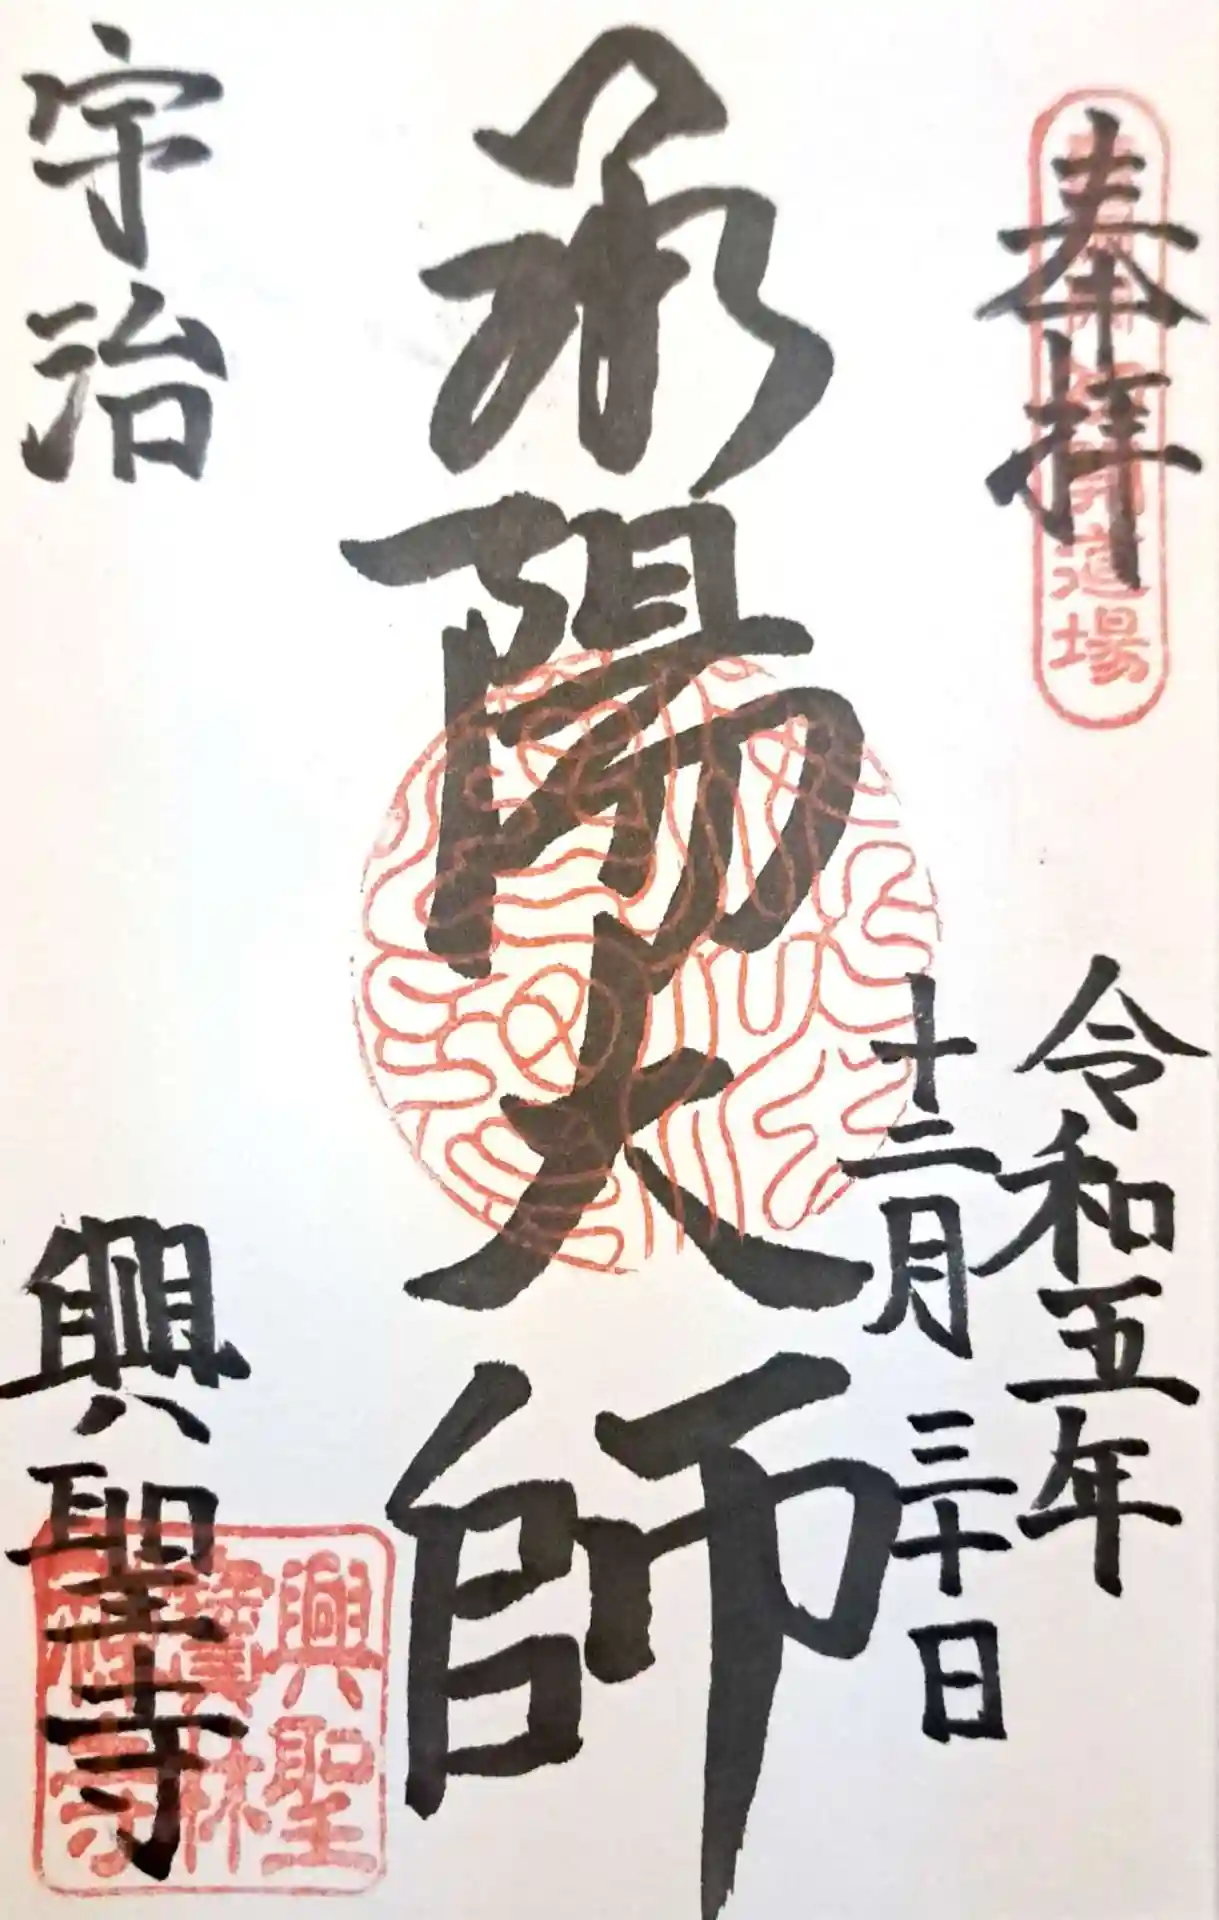 奉拝
道場
令和五年
十二月三十日
承陽大師
宇治
興聖寺
興聖
林
寺